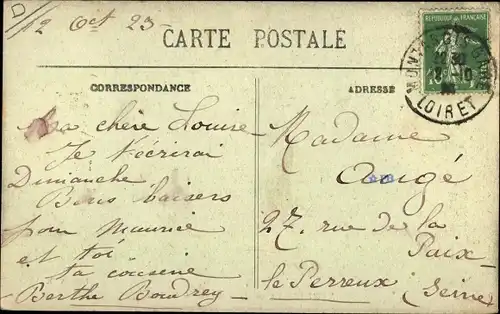 D
12 Oct 23
CARTE POSTALE
RÉPUBLIQUE FRANÇAISE
LOIRET
CORRESPONDANCE
ADRESSE
Ma chère Louise
Je t'écrirai
Dimanche
Bons baisers
pour Maurice
et toi
ta cousine
Berthe Boudrey
Madame
Augé
27, rue de la
Paix
le Perreux (Seine)